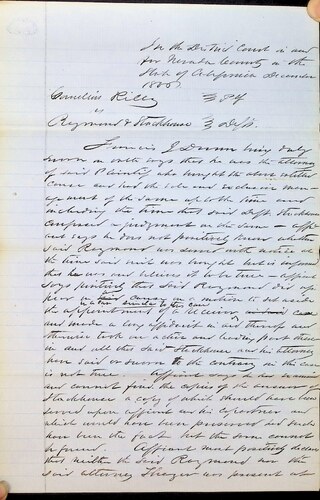 In the District Court in and
for Nevada County in the
State of California December
Cornelius Riley } Plff
vs
Raymond & Stackhouse } Defts.
Francis J Dunn being duly
sworn on oath says that he was the attorney
of said Plaintiff who brought the above entitled
cause and had the sole and exclusive man-
agement of the same up to the time and
including the time that said deft. Stackhouse
confessed judgment in the same – affi-
ant says he does not positively know whether
said Raymond was served with notice at
the time said suit was brought but is informed
that he was and believes it to be true – affiant
says positively that said Raymond did ap-
pear in a motion to set aside
the appointment of a receiver
and made a long affidavit in aid thereof and
otherwise took an active and leading part therein
in and all that said Stackhouse and his attorney
have said or sworn to the contrary in the case
is not true. Affiant
and cannot find the copies of the answer of
Stackhouse a copy of which should have been
served upon affiant
which would have been preserved had such
been the fact but the same cannot
be found. Affiant most positively declares
that neither the said Raymond nor the
said attorney was present at